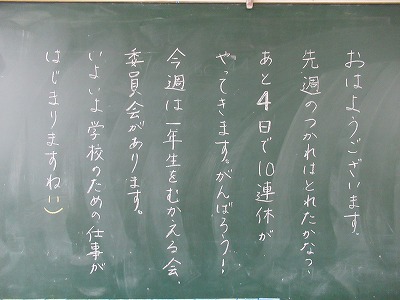 おはようございます。
先週のつかれはとれたかな?
あと4日で10連休が
やってきます。がんばろう!
今週は一年生をむかえる会、
委員会があります。
いよいよ学校のための仕事が
はじまりますね